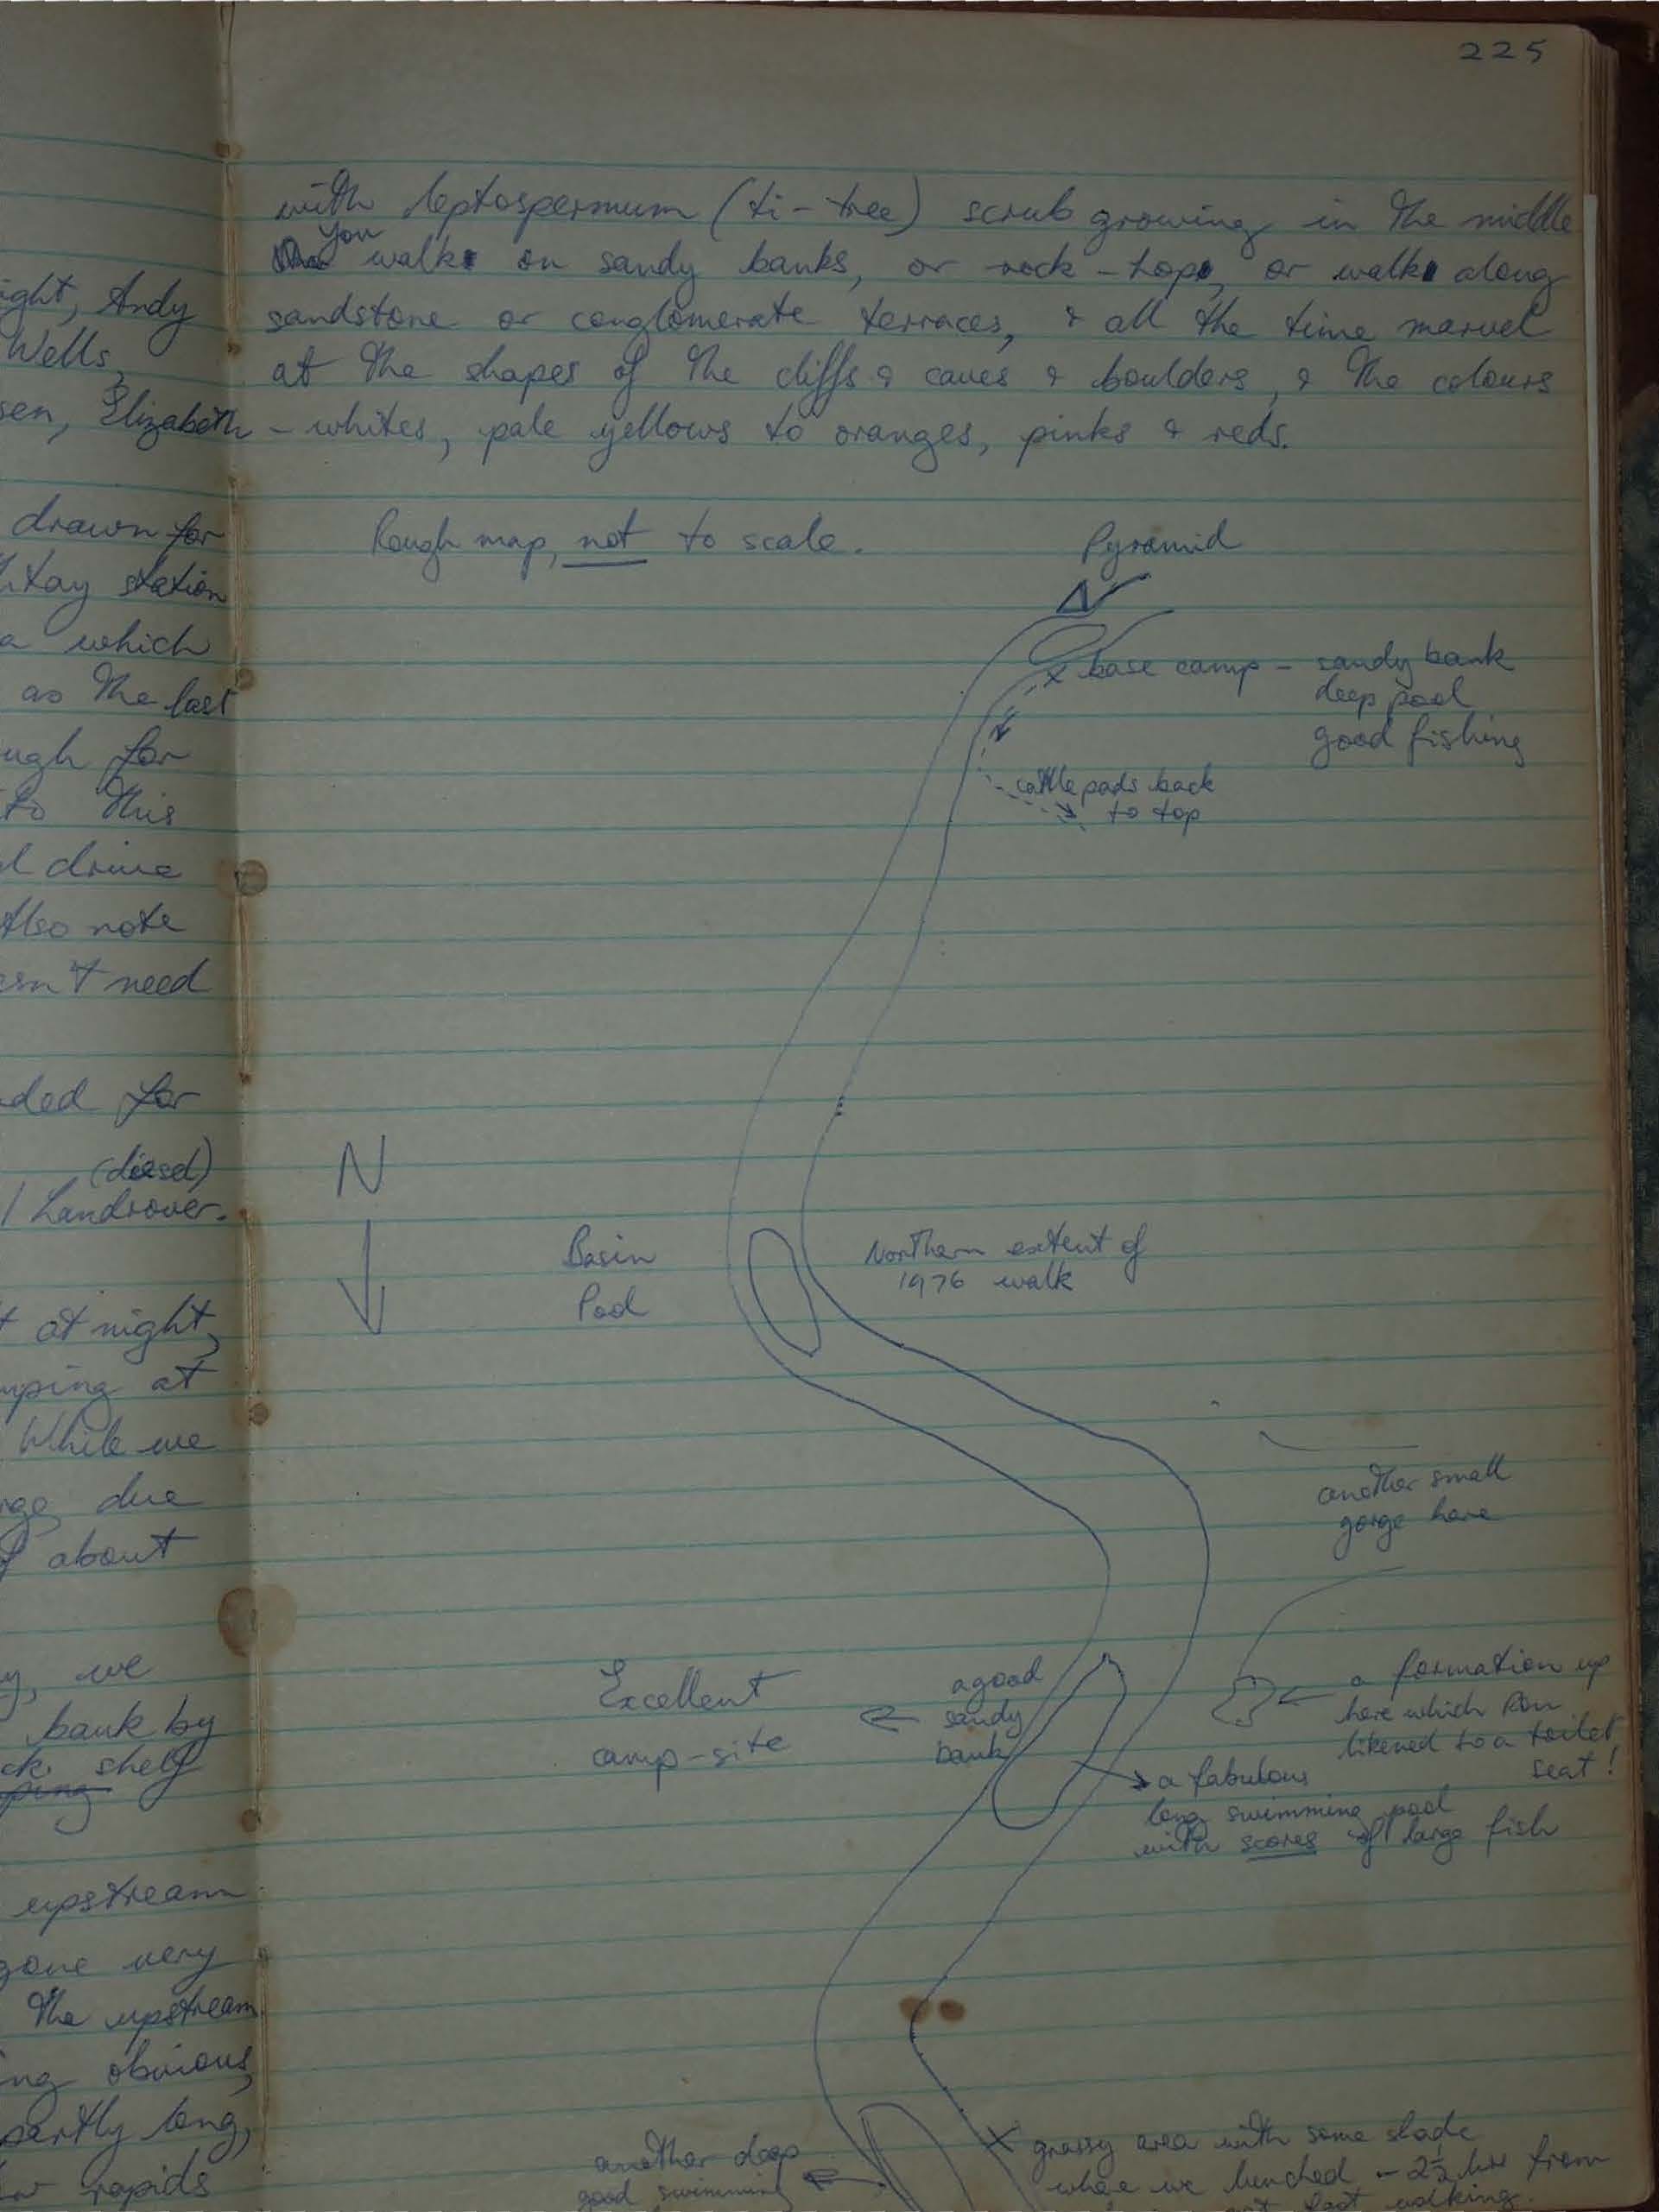 225
ight, Andy
Wells,
sen, Elizabeth
drawn for
station
a which
as the last
ugh for
to this
d drive
Also note
esn't need
ded for
(diesel)
/ Landrover.
t at night,
mping at
While we
rge due
about
y, we
bank by
ck shelf
upstream
gone very
The upstream
ng obvious,
partly long,
rapids
with leptospermum (ti-tree) scrub growing in the middle
You walk on sandy banks, or rock-tops, or walk along
sandstone or conglomerate terraces, & all the time marvel
at the shapes of the cliffs & caves & boulders, & the colours
- whites, pale yellows to oranges, pinks & reds.
Rough map, not to scale.
Pyramid
x base camp - sandy bank
deep pool
good fishing
cattle pads back
to top
N
Basin
Pool
Northern extent of
1976 walk
another small
gorge here
Excellent
camp-site
a good
sandy
bank
a formation up
here which Ron
likened to a toilet
seat!
a fabulous
long swimming pool
with scores of large fish
another deep
good swimming
x grassy area with some shade
where we lunched - 2½ hrs from
walking.